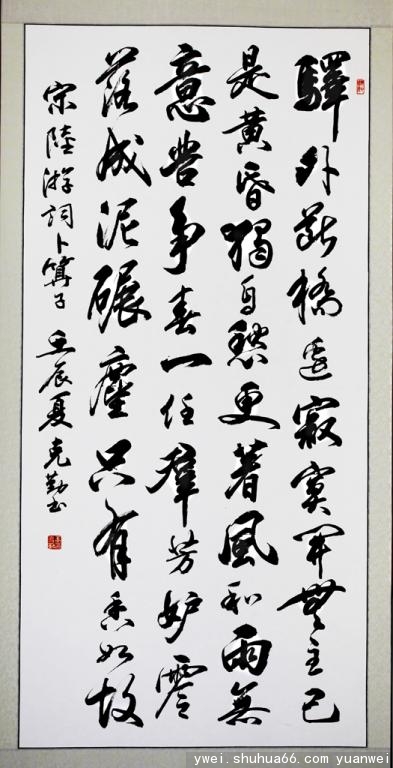 驛外斷橋邊寂寞開無主已
是黃昏獨自愁更著風和雨無
意苦争春一任羣芳妒零
落成泥碾塵只有香如故
宋陸游詞卜算子 壬辰夏克勤書
ywei.shuhua66.com yuanwei